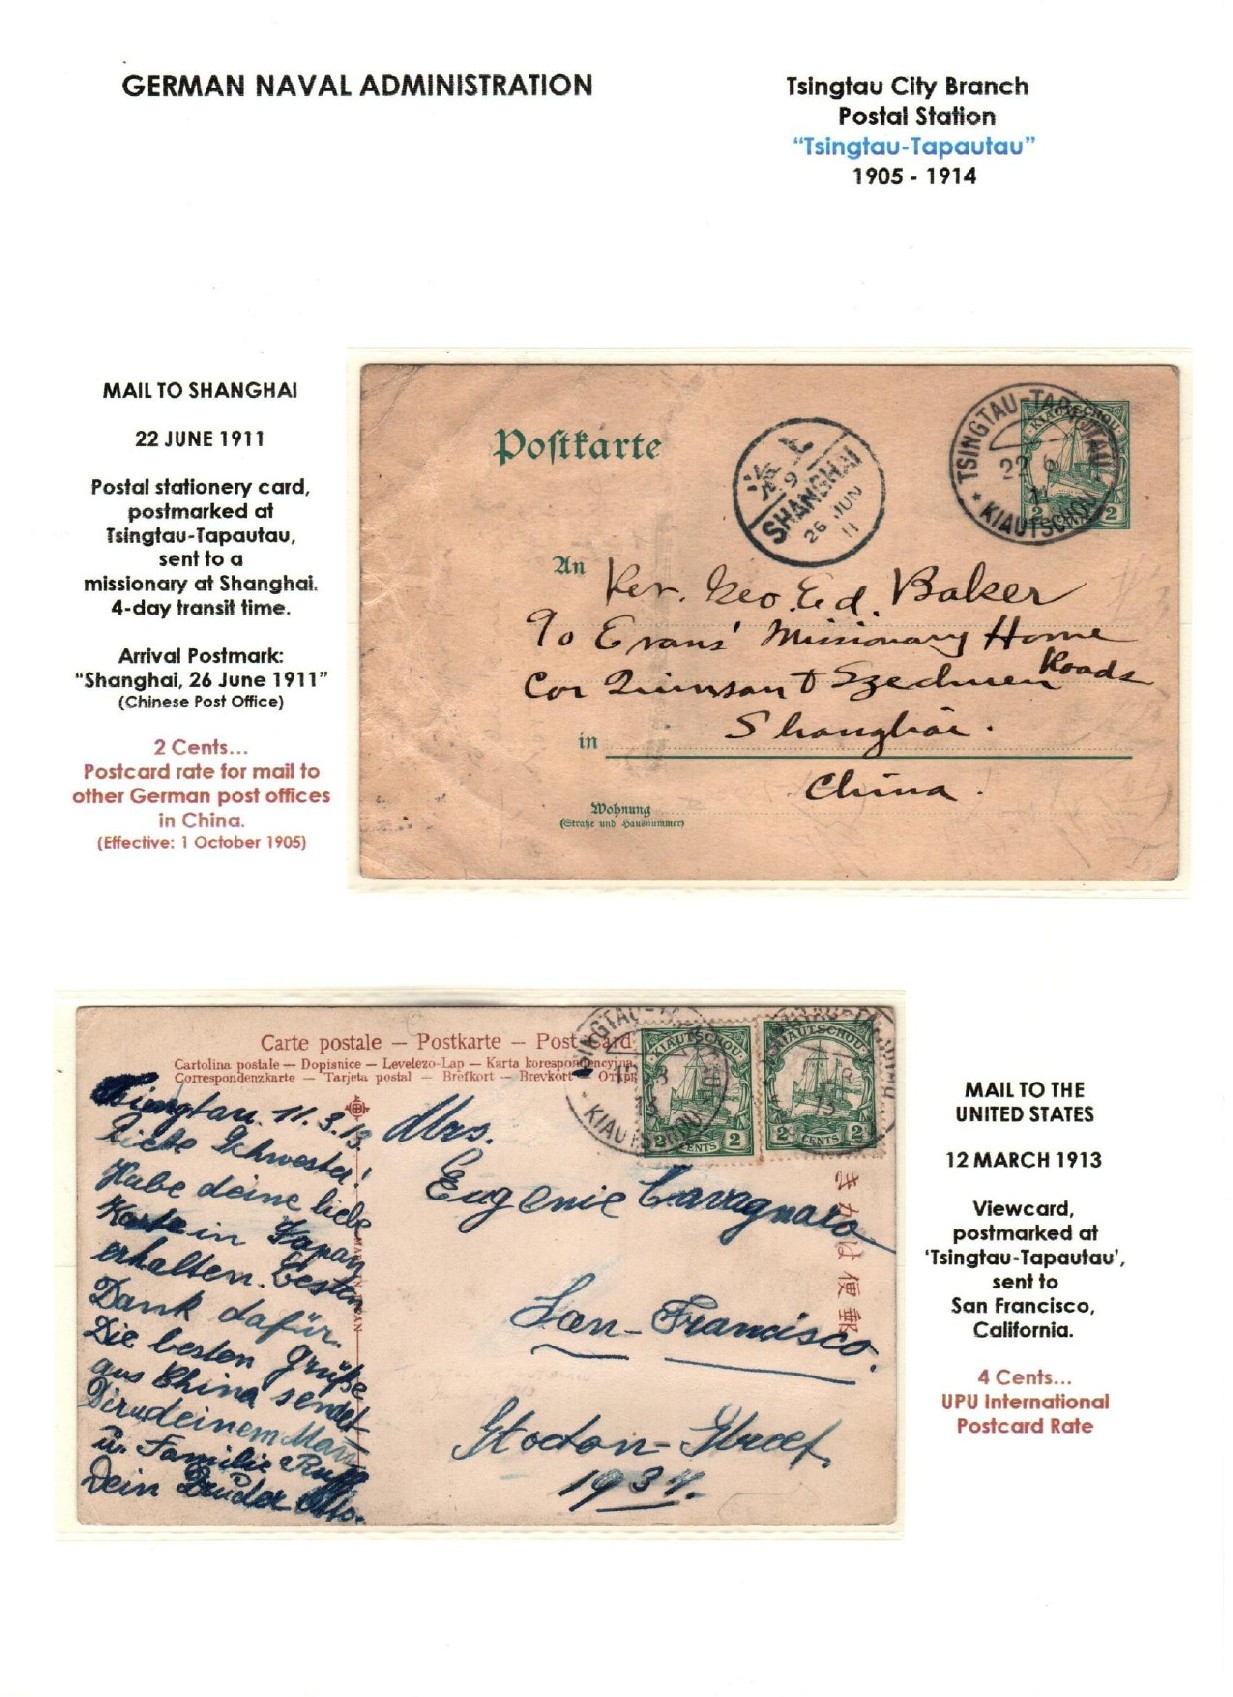 GERMAN NAVAL ADMINISTRATION
Tsingtau City Branch
Postal Station
“Tsingtau-Tapautau”
1905 - 1914
MAIL TO SHANGHAI
22 JUNE 1911
Postal stationery card,
postmarked at
Tsingtau-Tapautau,
sent to a
missionary at Shanghai.
4-day transit time.
Arrival Postmark:
"Shanghai, 26 June 1911”
(Chinese Post Office)
2 Cents...
Postcard rate for mail to
other German post offices
in China.
(Effective: 1 October 1905)
Postkarte
上海
9
SHANGHAI
26 JUN
11
TSINGTAU-TAPAUTAU
22 6
11
* KIAUTSCHOU
KIAUTSCHOU
2 2
An
Rev. Geo. Ed. Baker
c/o Evans' Missionary Home
Cor Quinsan & Szechuen Roads
Shanghai.
in
China.
Wohnung
(Straße und Hausnummer)
Carte postale — Postkarte — Post Card
Cartolina postale — Dopisnice — Levelezo-Lap — Karta korespondencyjna
Correspondenzkarte — Tarjeta postal — Brefkort — Brevkort —
TSINGTAU-
KIAUTSCHOU
KIAUTSCHOU
2 CENTS 2
KIAUTSCHOU
2 CENTS 2
Tsingtau. 11.3.13.
Liebe Schwester!
Habe deine liebe
Karte in Japan
erhalten. Besten
Dank dafür.
Die besten Grüße
aus China sendet
Dir u deinem Mann
u. Familie
Dein Bruder Otto.
Mrs.
Eugenie Cavagnaro
San-Francisco.
Stocton-Street.
1934.
きかは便郵
MAIL TO THE
UNITED STATES
12 MARCH 1913
Viewcard,
postmarked at
‘Tsingtau-Tapautau’,
sent to
San Francisco,
California.
4 Cents...
UPU International
Postcard Rate